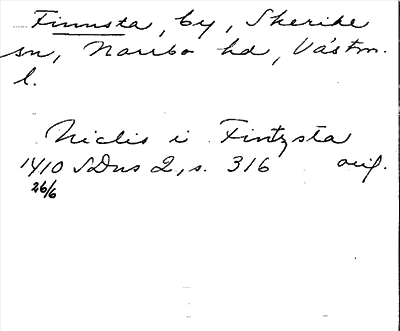 Finnsta, by, Skerike
sn, Norrbo hd, Västm.
l.
Niclis i Fintzsta
1410 SDns 2, s. 316 orig.
26/6